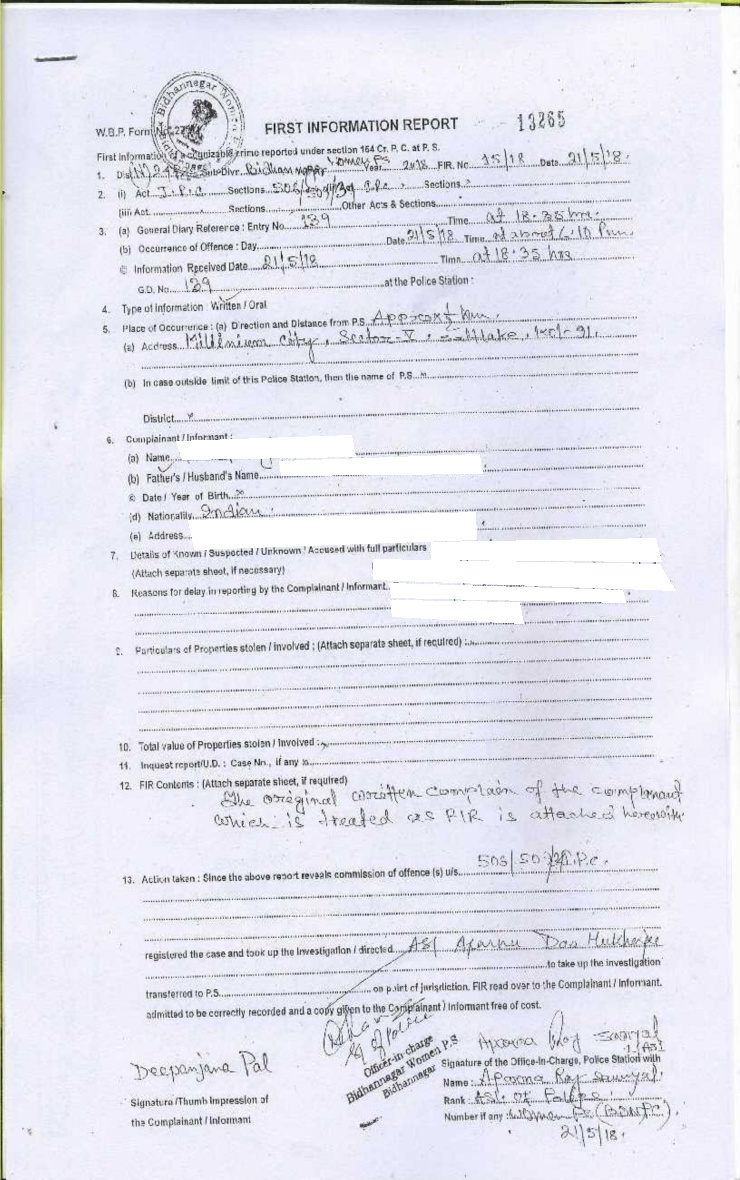 Bidhannagar Women
W.B.P. Form No. 27
FIRST INFORMATION REPORT
13265
First Information of a cognizable crime reported under section 154 Cr. P. C. at P. S.
1. Dist. Sub-Divr. Bidhannagar Women PS Year 2018 FIR. No 15/18 Date 21/5/18.
2. (i) Act I.P.C Sections 506/509/34 I.P.C. Sections
(iii) Act Sections Other Acts & Sections
3. (a) General Diary Reference : Entry No. 139 Time at 18.35 hrs.
(b) Occurrence of Offence : Day Date 21/5/18 Time at about 6.10 P.m.
© Information Received Date 21/5/18 Time at 18.35 hrs
G.D. No. 139 at the Police Station :
4. Type of Information : Written / Oral
5. Place of Occurrence : (a) Direction and Distance from P.S. Approx ½ km.
(a) Address Millenium City, Sector-V, Saltlake, Kol-91.
(b) In case outside limit of this Police Station, then the name of P.S.
District
6. Complainant / Informant :
(a) Name
(b) Father's / Husband's Name
© Date / Year of Birth
(d) Nationality Indian.
(e) Address
7. Details of Known / Suspected / Unknown / Accused with full particulars
(Attach separate sheet, if necessary)
8. Reasons for delay in reporting by the Complainant / Informant
9. Particulars of Properties stolen / involved : (Attach separate sheet, if required) :
10. Total value of Properties stolen / Involved :
11. Inquest report/U.D. : Case No., if any
12. FIR Contents : (Attach separate sheet, if required)
The oreginal coretten complain of the complanant
which is treated as FIR is attached herewith.
506/509/34 I.P.C.
13. Action taken : Since the above report reveals commission of offence (s) u/s
registered the case and took up the Investigation / directed ASI Aparna Das Mukherjee
to take up the investigation
transferred to P.S. on point of jurisdiction. FIR read over to the Complainant / Informant,
admitted to be correctly recorded and a copy given to the Complainant / Informant free of cost.
of Police
Officer-in-charge
Bidhannagar Women P.S
Bidhannagar
Aparna Roy Sanyal
Deepanjana Pal
Signature of the Office-In-Charge, Police Station with
Name : Aparna Roy Sanyal.
Signature /Thumb Impression of
Rank : ASI. Of Police
the Complainant / Informant
Number if any : Women PS (BDNPC).
21/5/18.